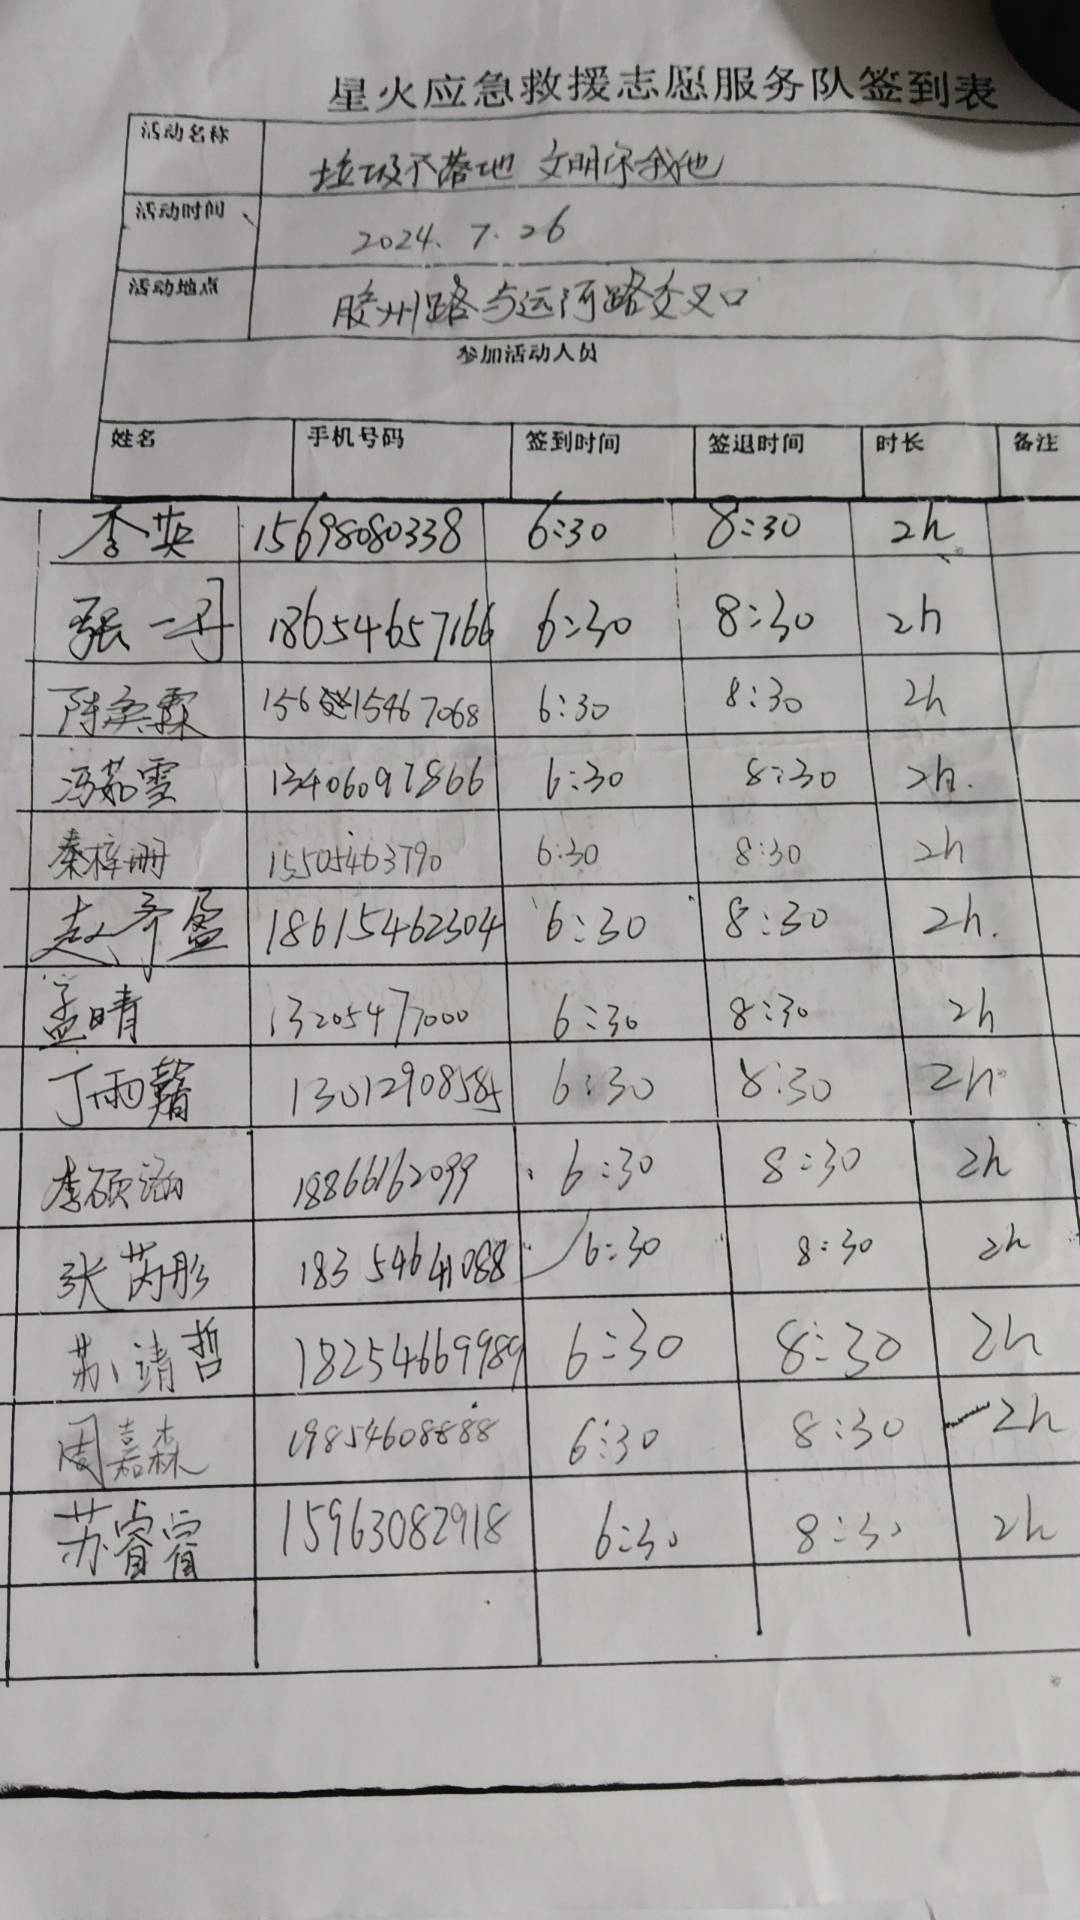 星火应急救援志愿服务队签到表
活动名称 垃圾不落地 文明你我他
活动时间 2024.7.26
活动地点 胶州路与运河路交叉口
参加活动人员
姓名 手机号码 签到时间 签退时间 时长 备注
李英 15698080338 6:30 8:30 2h
张一丹 18654657166 6:30 8:30 2h
陈奕霖 15615467068 6:30 8:30 2h
冯茹雪 13406097866 6:30 8:30 2h.
秦梓珊 15505463790 6:30 8:30 2h
赵齐盈 18615462304 6:30 8:30 2h.
孟晴 13205477000 6:30 8:30 2h
丁雨 6:30 8:30 2h
李硕涵 18866162099 6:30 8:30 2h
张芮彤 18354641088 6:30 8:30 2h
苏靖哲 18254669989 6:30 8:30 2h
周嘉森 19854608888 6:30 8:30 2h
苏睿 15963082918 6:30 8:30 2h